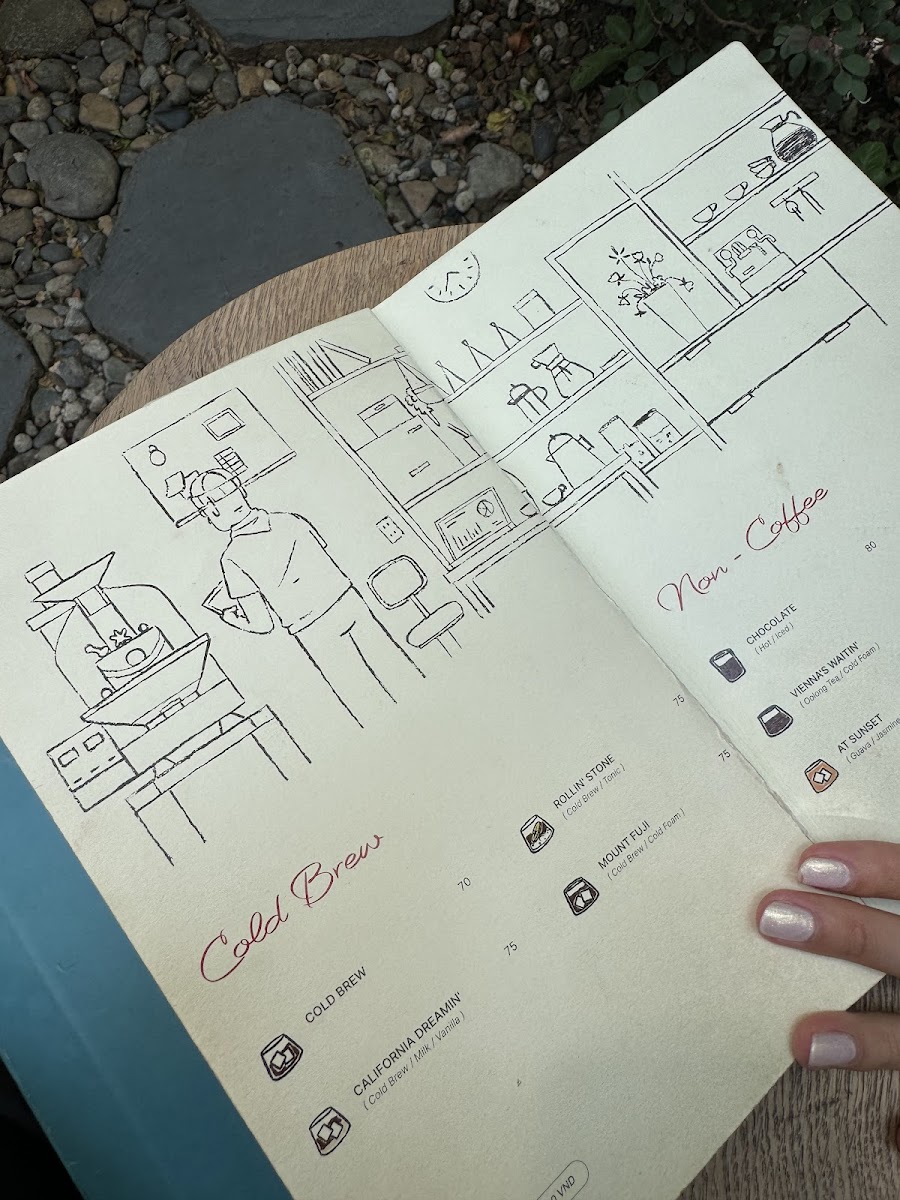 Cold Brew
COLD BREW
70
CALIFORNIA DREAMIN'
75
( Cold Brew / Milk / Vanilla )
ROLLIN' STONE
75
( Cold Brew / Tonic )
MOUNT FUJI
75
( Cold Brew / Cold Foam )
VND
Non - Coffee
CHOCOLATE
80
( Hot / Iced )
VIENNA'S WAITIN'
( Oolong Tea / Cold Foam )
AT SUNSET
( Guava / Jasmine